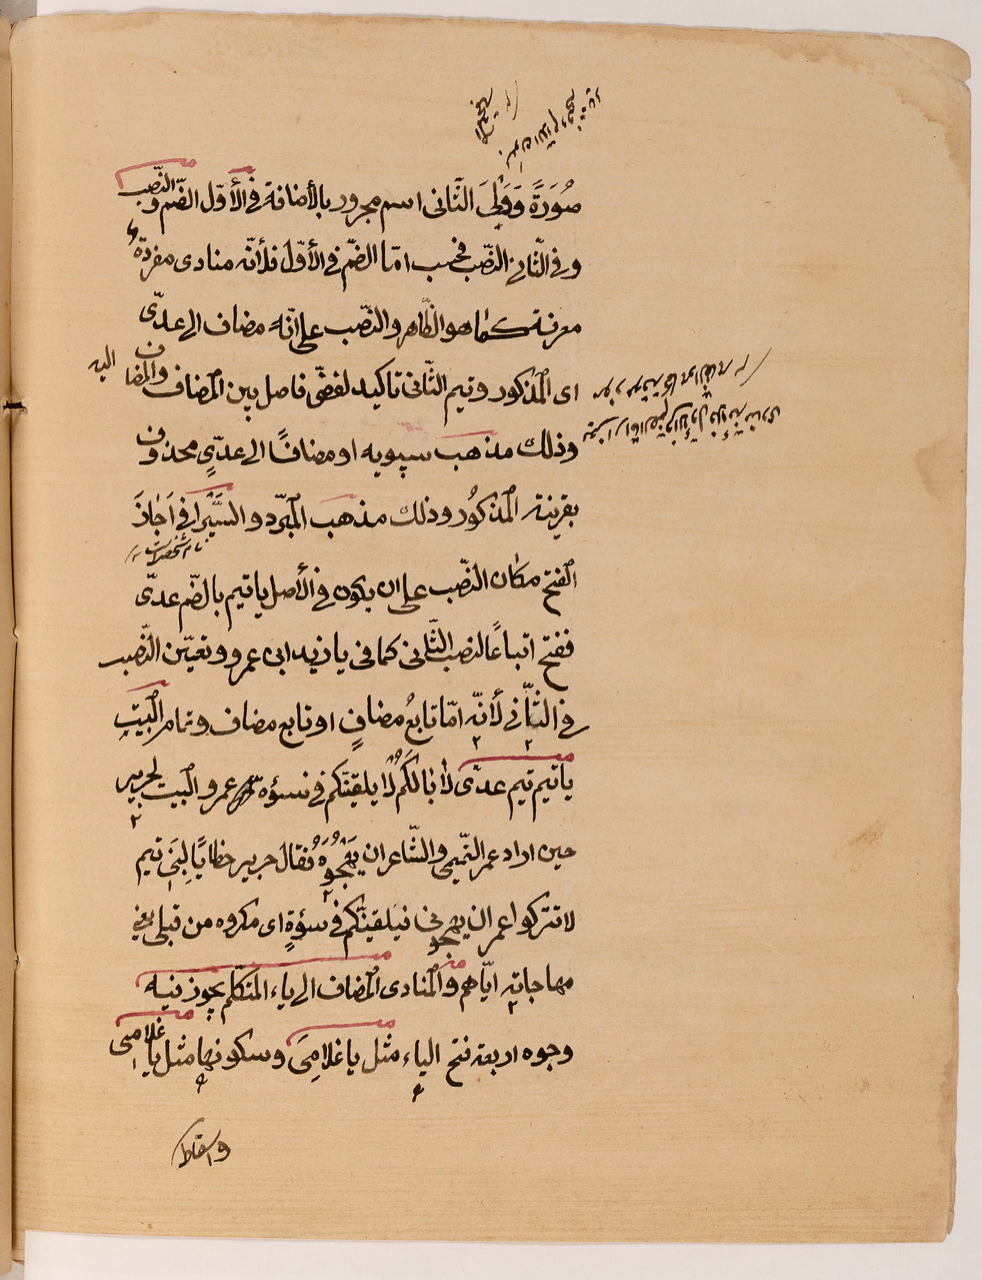 صُورَةً وَوَلِىَ الثّانى اسم مجرور بالأضافة فى الأوّل الضّم والنّصب
وفى الثّانى النّصب فحسب امّا الضمّ فى الأوّل فلأنّه منادى مفردة
معرفة كما هو الظّاهر والنّصب على انّه مضاف الى عدىّ
اى المذكور وتيم الثّانى تاكيد لفظىّ فاصل بين المضاف والمضاف اليه
وذلك مذهب سيبويه او مضافًا الى عدىٍّ محذوف
بقرينة المذكُور وذلك مذهب المبرّد والسَّيْرافى اَجازَ
الفتح مكان النّصب على ان يكون فى الأصل يا تيم بالضّم عدىّ
ففتح اتباعًا لنصب الثّانى كما فى يا زيد ابن عمرو وتعيّن النّصب
فى الثّانى لأنّه امّا تابعُ مضافٍ او تابع مضاف وتمام البيت
يا تيم تيم عدىّ لا ابا لكُمُ لا يلقينّكم فى سوءة عمرو البيت لجرير
حين اراد عمر التّيمى والشّاعر ان يَهْجُوَهُ فقال جرير خطابًا لِبَنِى تيم
لا تتركوا عمر ان يهجونى فيلقينّكم فى سوءةٍ اى مكروه من قبلى يعنى
مهاجاته ايّاهم والمنادى المضاف الى ياء المتكلّم يجوز فيه
وجوه اربعة فتح الياء مثل يا غلامِىَ وسكونها مثل يا غلامى
واسقاط